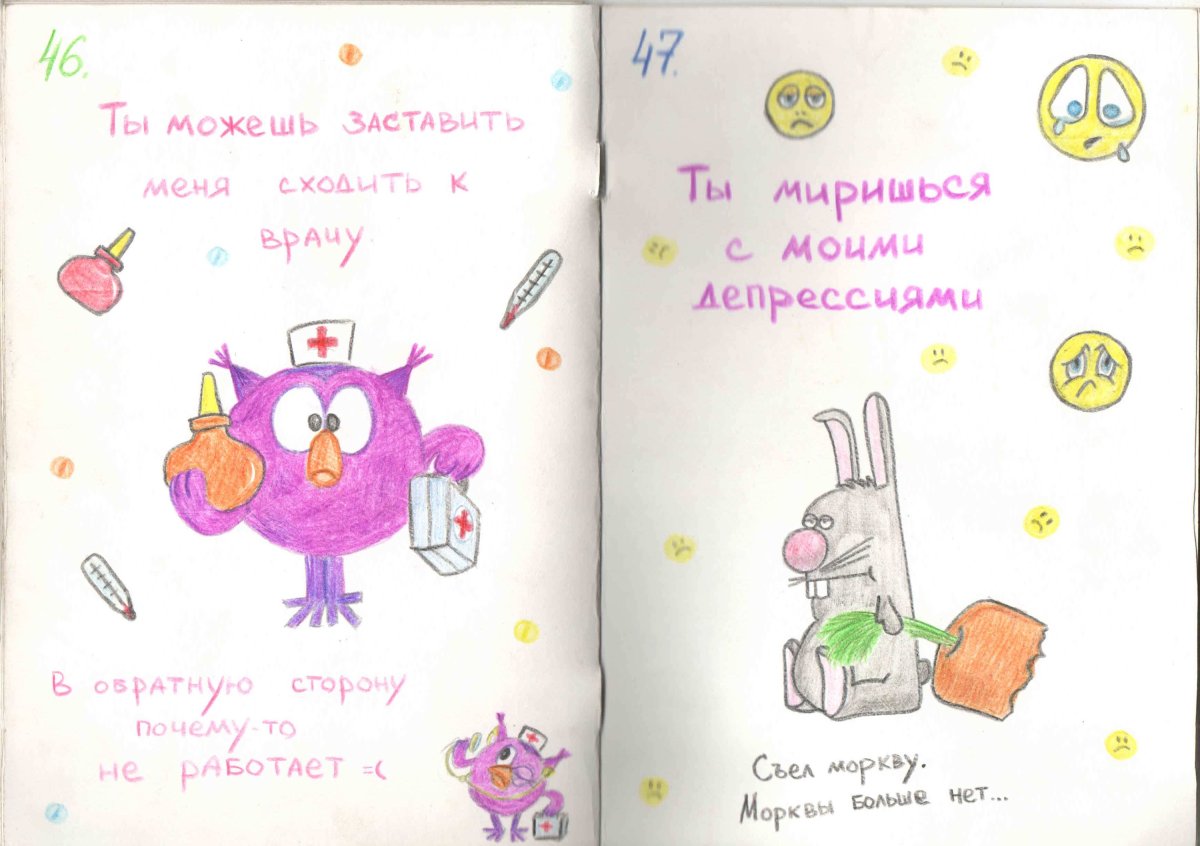 46.
Ты можешь заставить
меня сходить к
врачу
В обратную сторону
почему-то
не работает =(
47.
Ты миришься
с моими
депрессиями
Съел моркву.
Морквы больше нет...